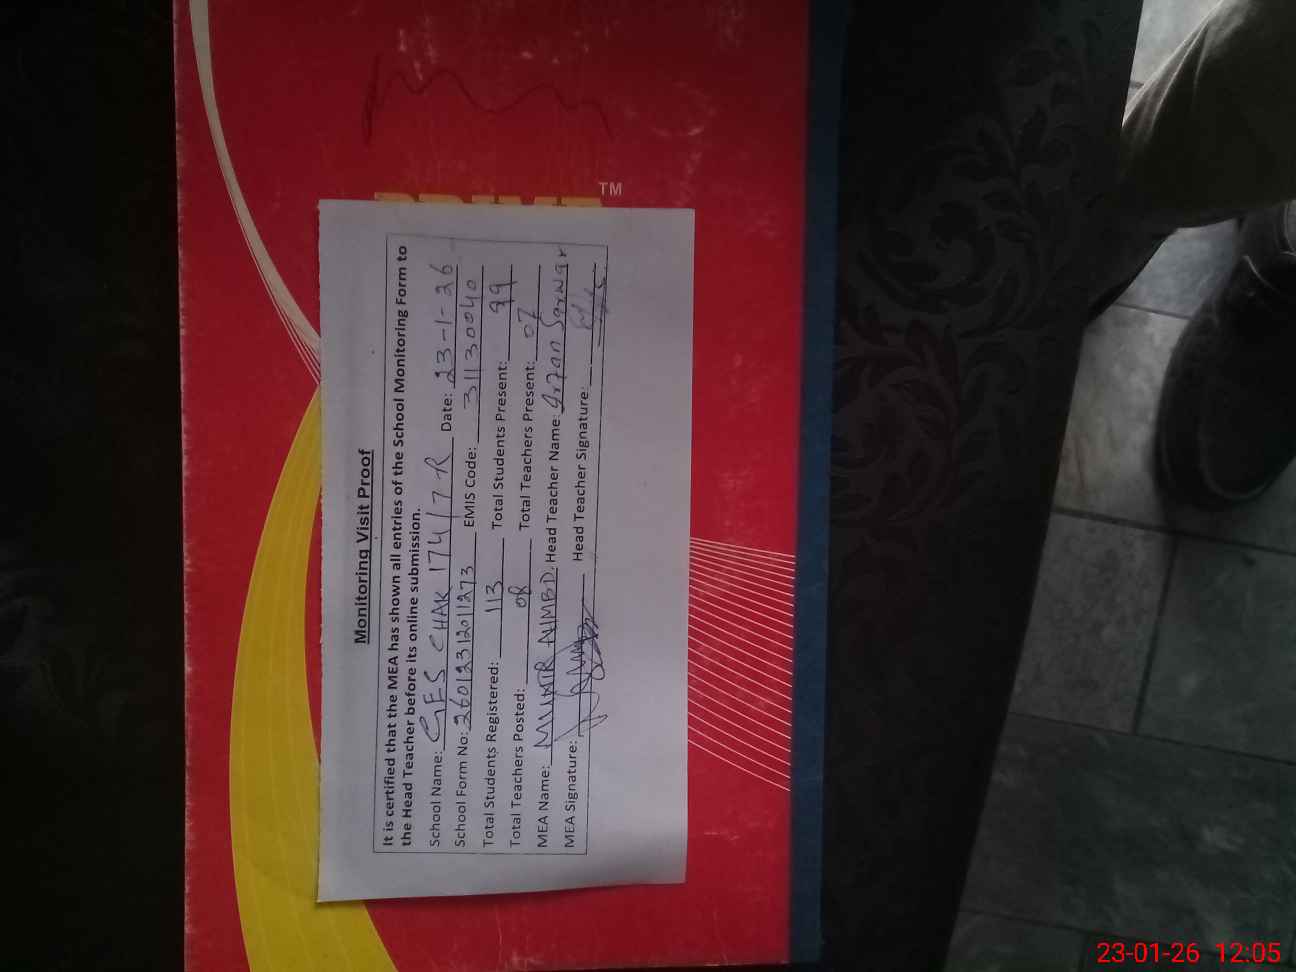 TM
Monitoring Visit Proof
It is certified that the MEA has shown all entries of the School Monitoring Form to
the Head Teacher before its online submission.
School Name: GES CHAK 174/7-R Date: 23-1-26
School Form No: 26012312011273 EMIS Code: 31130040
Total Students Registered: 113 Total Students Present: 99
Total Teachers Posted: 08 Total Teachers Present: 07
MEA Name: MUNIR AHMBD Head Teacher Name: Irfan Sarwar
MEA Signature: Head Teacher Signature:
23-01-26 12:05